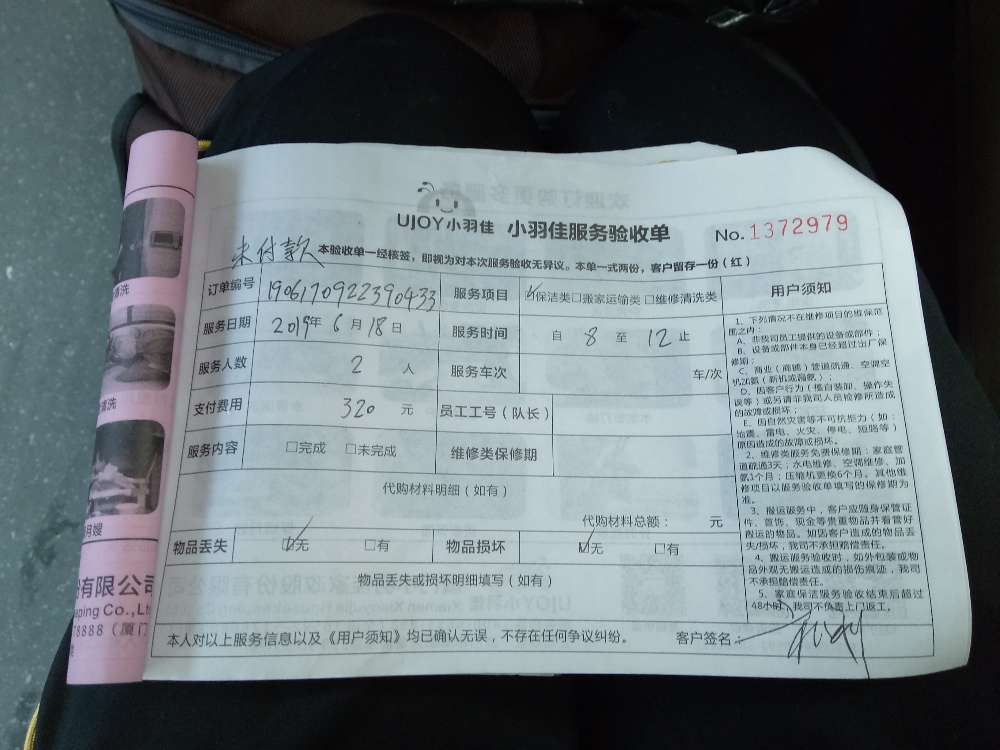 UJOY小羽佳 小羽佳服务验收单 No.1372979
未付款 本验收单一经核签，即视为对本次服务验收无异议。本单一式两份，客户留存一份（红）
订单编号 1906170922390433 服务项目 ☑保洁类□搬家运输类□维修清洗类
服务日期 2019年6月18日 服务时间 自 8 至 12 止
服务人数 2 人 服务车次 车/次
支付费用 320 元 员工工号（队长）
服务内容 □完成 □未完成 维修类保修期
代购材料明细（如有）
代购材料总额： 元
物品丢失 ☑无 □有 物品损坏 ☑无 □有
物品丢失或损坏明细填写（如有）
本人对以上服务信息以及《用户须知》均已确认无误，不存在任何争议纠纷。 客户签名：
用户须知
1、下列情况不在维修项目的维保范
围之内：
A、非我司员工提供的设备或部件；
B、设备或部件本身已经超过出厂保
修期；
C、商业（商铺）管道疏通、空调空
机加氨（新机或漏氨）；
D、因客户行为（擅自装卸、操作失
误等）或另请非我司人员检修所造成
的故障或损坏；
E、因自然灾害等不可抗拒力（如：
地震、雷电、火灾、停电、短路等）
原因造成的故障或损坏。
2、维修类服务免费保修期：家庭管
道疏通3天；水电维修、空调维修、加
氨1个月；压缩机更换6个月。其他维
修项目以服务验收单填写的保修期为
准。
3、搬运服务中，客户应随身保管证
件、首饰、现金等贵重物品并看管好
搬运的物品。如因客户造成的物品丢
失/损坏，我司不承担赔偿责任。
4、搬运服务验收时，如外包装或物
品外观无搬运造成的损伤痕迹，我司
不承担赔偿责任。
5、家庭保洁服务验收结束后超过
48小时，我司不负责上门返工。
清洗
清洗
月嫂
份有限公司
eping Co.,Lt
78888（厦门